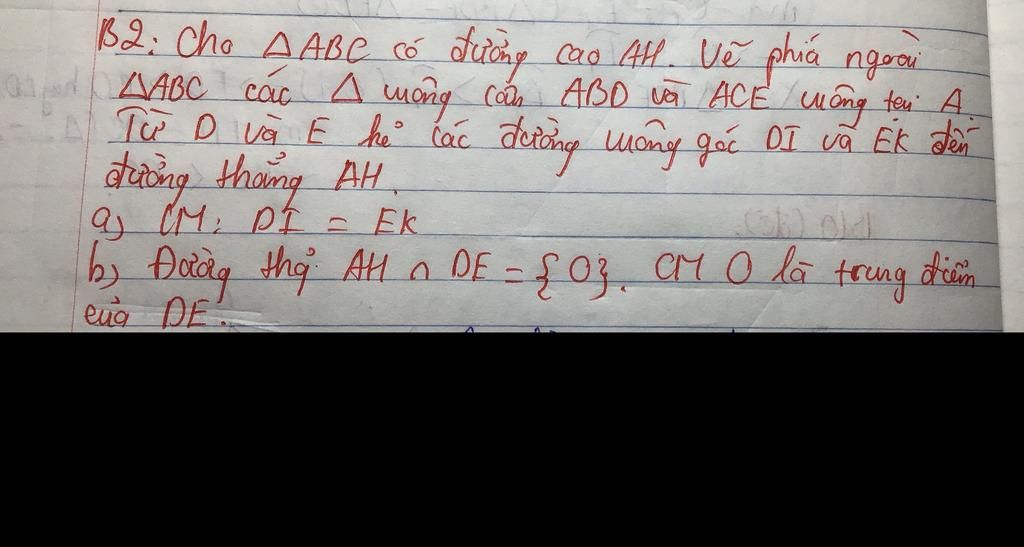 B2: Cho △ABC có đường cao AH. Vẽ phiá ngoài
△ABC các △ vuông cân ABD và ACE vuông tại A.
Từ D và E kẻ các đường vuông góc DI và EK đến
đường thẳng AH.
a) CM: DI = EK
b) Đường thg̉ AH ∩ DE = {O}. CM O là trung điểm
của DE.